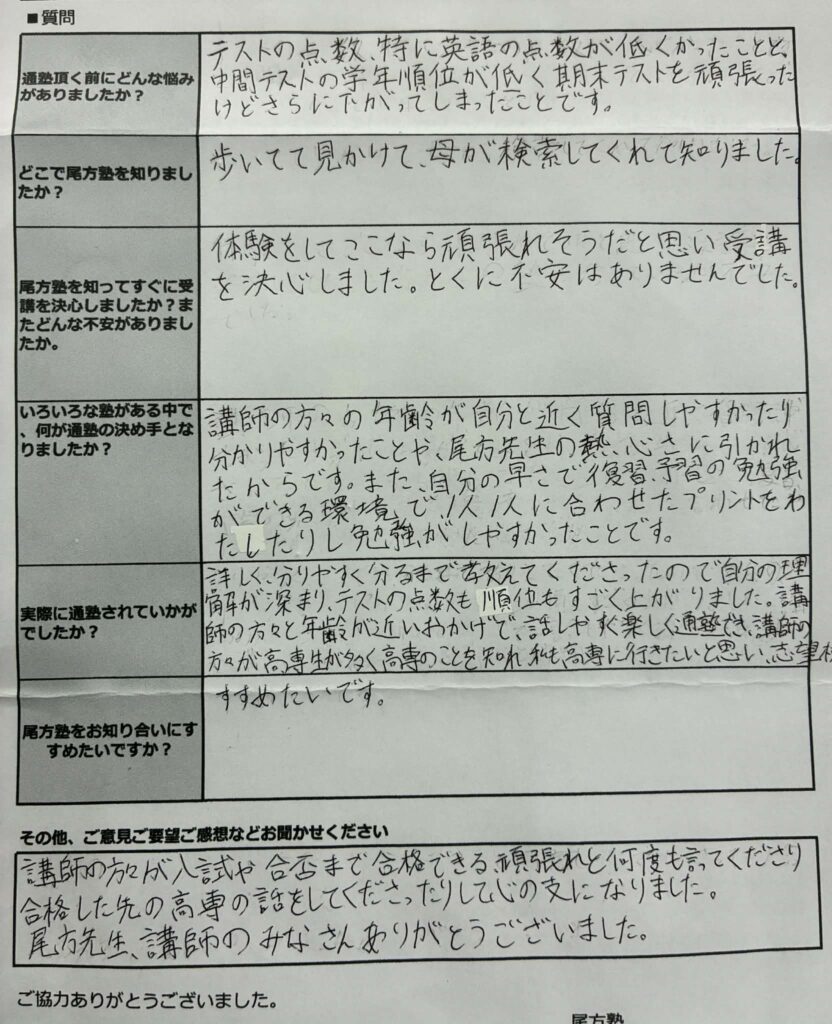 ■質問
通塾頂く前にどんな悩み
がありましたか？
テストの点数、特に英語の点数が低くかったことと、
中間テストの学年順位が低く期末テストを頑張った
けどさらに下がってしまったことです。
どこで尾方塾を知りまし
たか？
歩いてて見かけて、母が検索してくれて知りました。
尾方塾を知ってすぐに受
講を決心しましたか？ま
たどんな不安がありまし
たか。
体験をしてここなら頑張れそうだと思い受講
を決心しました。とくに不安はありませんでした。
いろいろな塾がある中で
、何が通塾の決め手とな
りましたか？
講師の方々の年齢が自分と近く質問しやすかったり
分かりやすかったことや、尾方先生の熱心さに引かれ
たからです。また、自分の早さで復習、予習の勉強
ができる環境で、1人1人に合わせたプリントをわ
たしたりし勉強がしやすかったことです。
実際に通塾されていかが
でしたか？
詳しく、分りやすく分るまで教えてくださったので自分の理
解が深まり、テストの点数も順位もすごく上がりました。講
師の方々と年齢が近いおかげで、話しやすく楽しく通塾でき、講師の
方々が高専生が多く高専のことを知れ、私も高専に行きたいと思い、志望校
尾方塾をお知り合いにす
すめたいですか？
すすめたいです。
その他、ご意見ご要望ご感想などお聞かせください
講師の方々が入試や合否まで合格できる、頑張れと何度も言ってくださり
合格した先の高専の話をしてくださったりして心の支になりました。
尾方先生、講師のみなさんありがとうございました。
ご協力ありがとうございました。
尾方塾